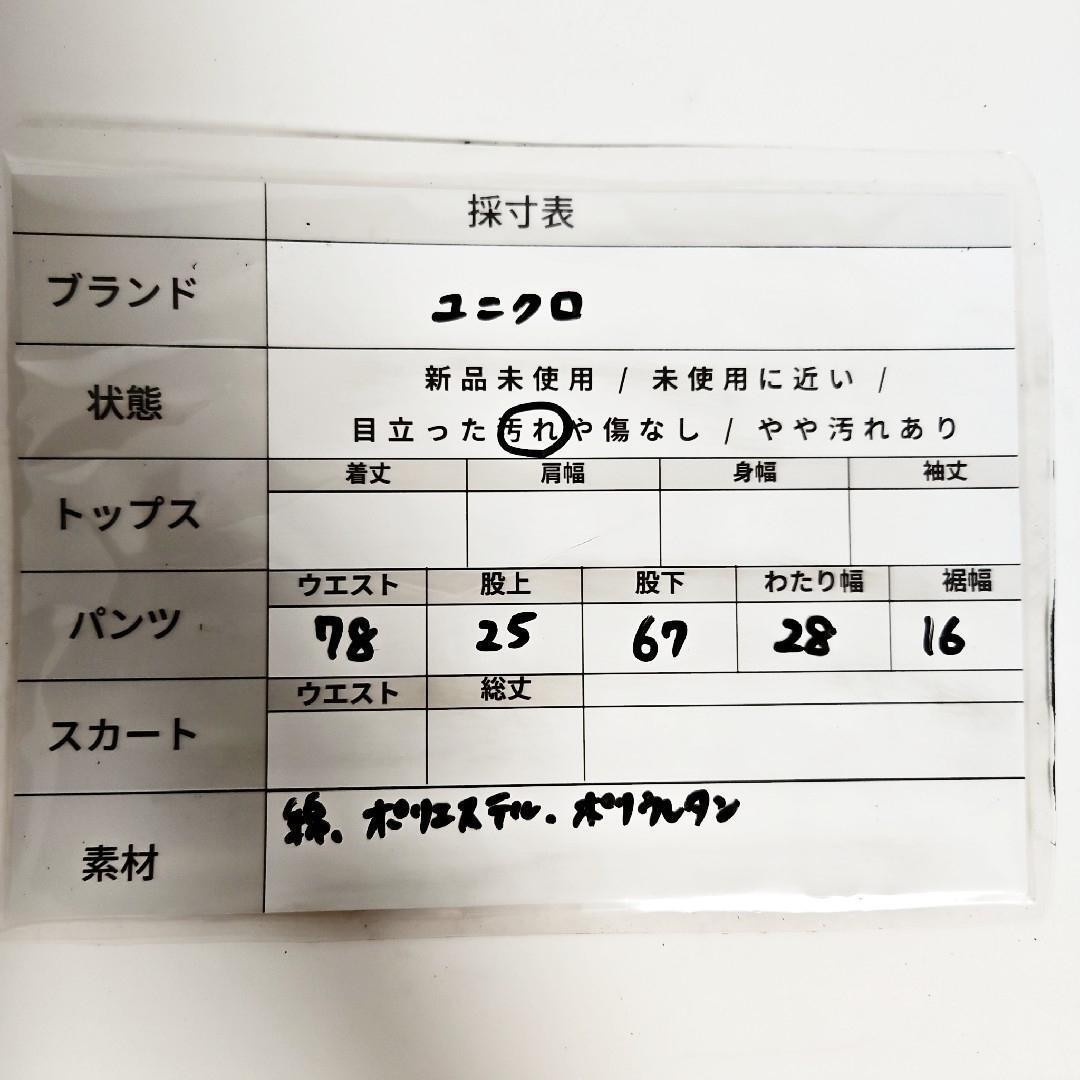 採寸表
ブランド
ユニクロ
状態
新品未使用 / 未使用に近い /
目立った汚れや傷なし / やや汚れあり
トップス
着丈 肩幅 身幅 袖丈
パンツ
ウエスト 股上 股下 わたり幅 裾幅
78 25 67 28 16
スカート
ウエスト 総丈
素材
綿、ポリエステル、ポリウレタン